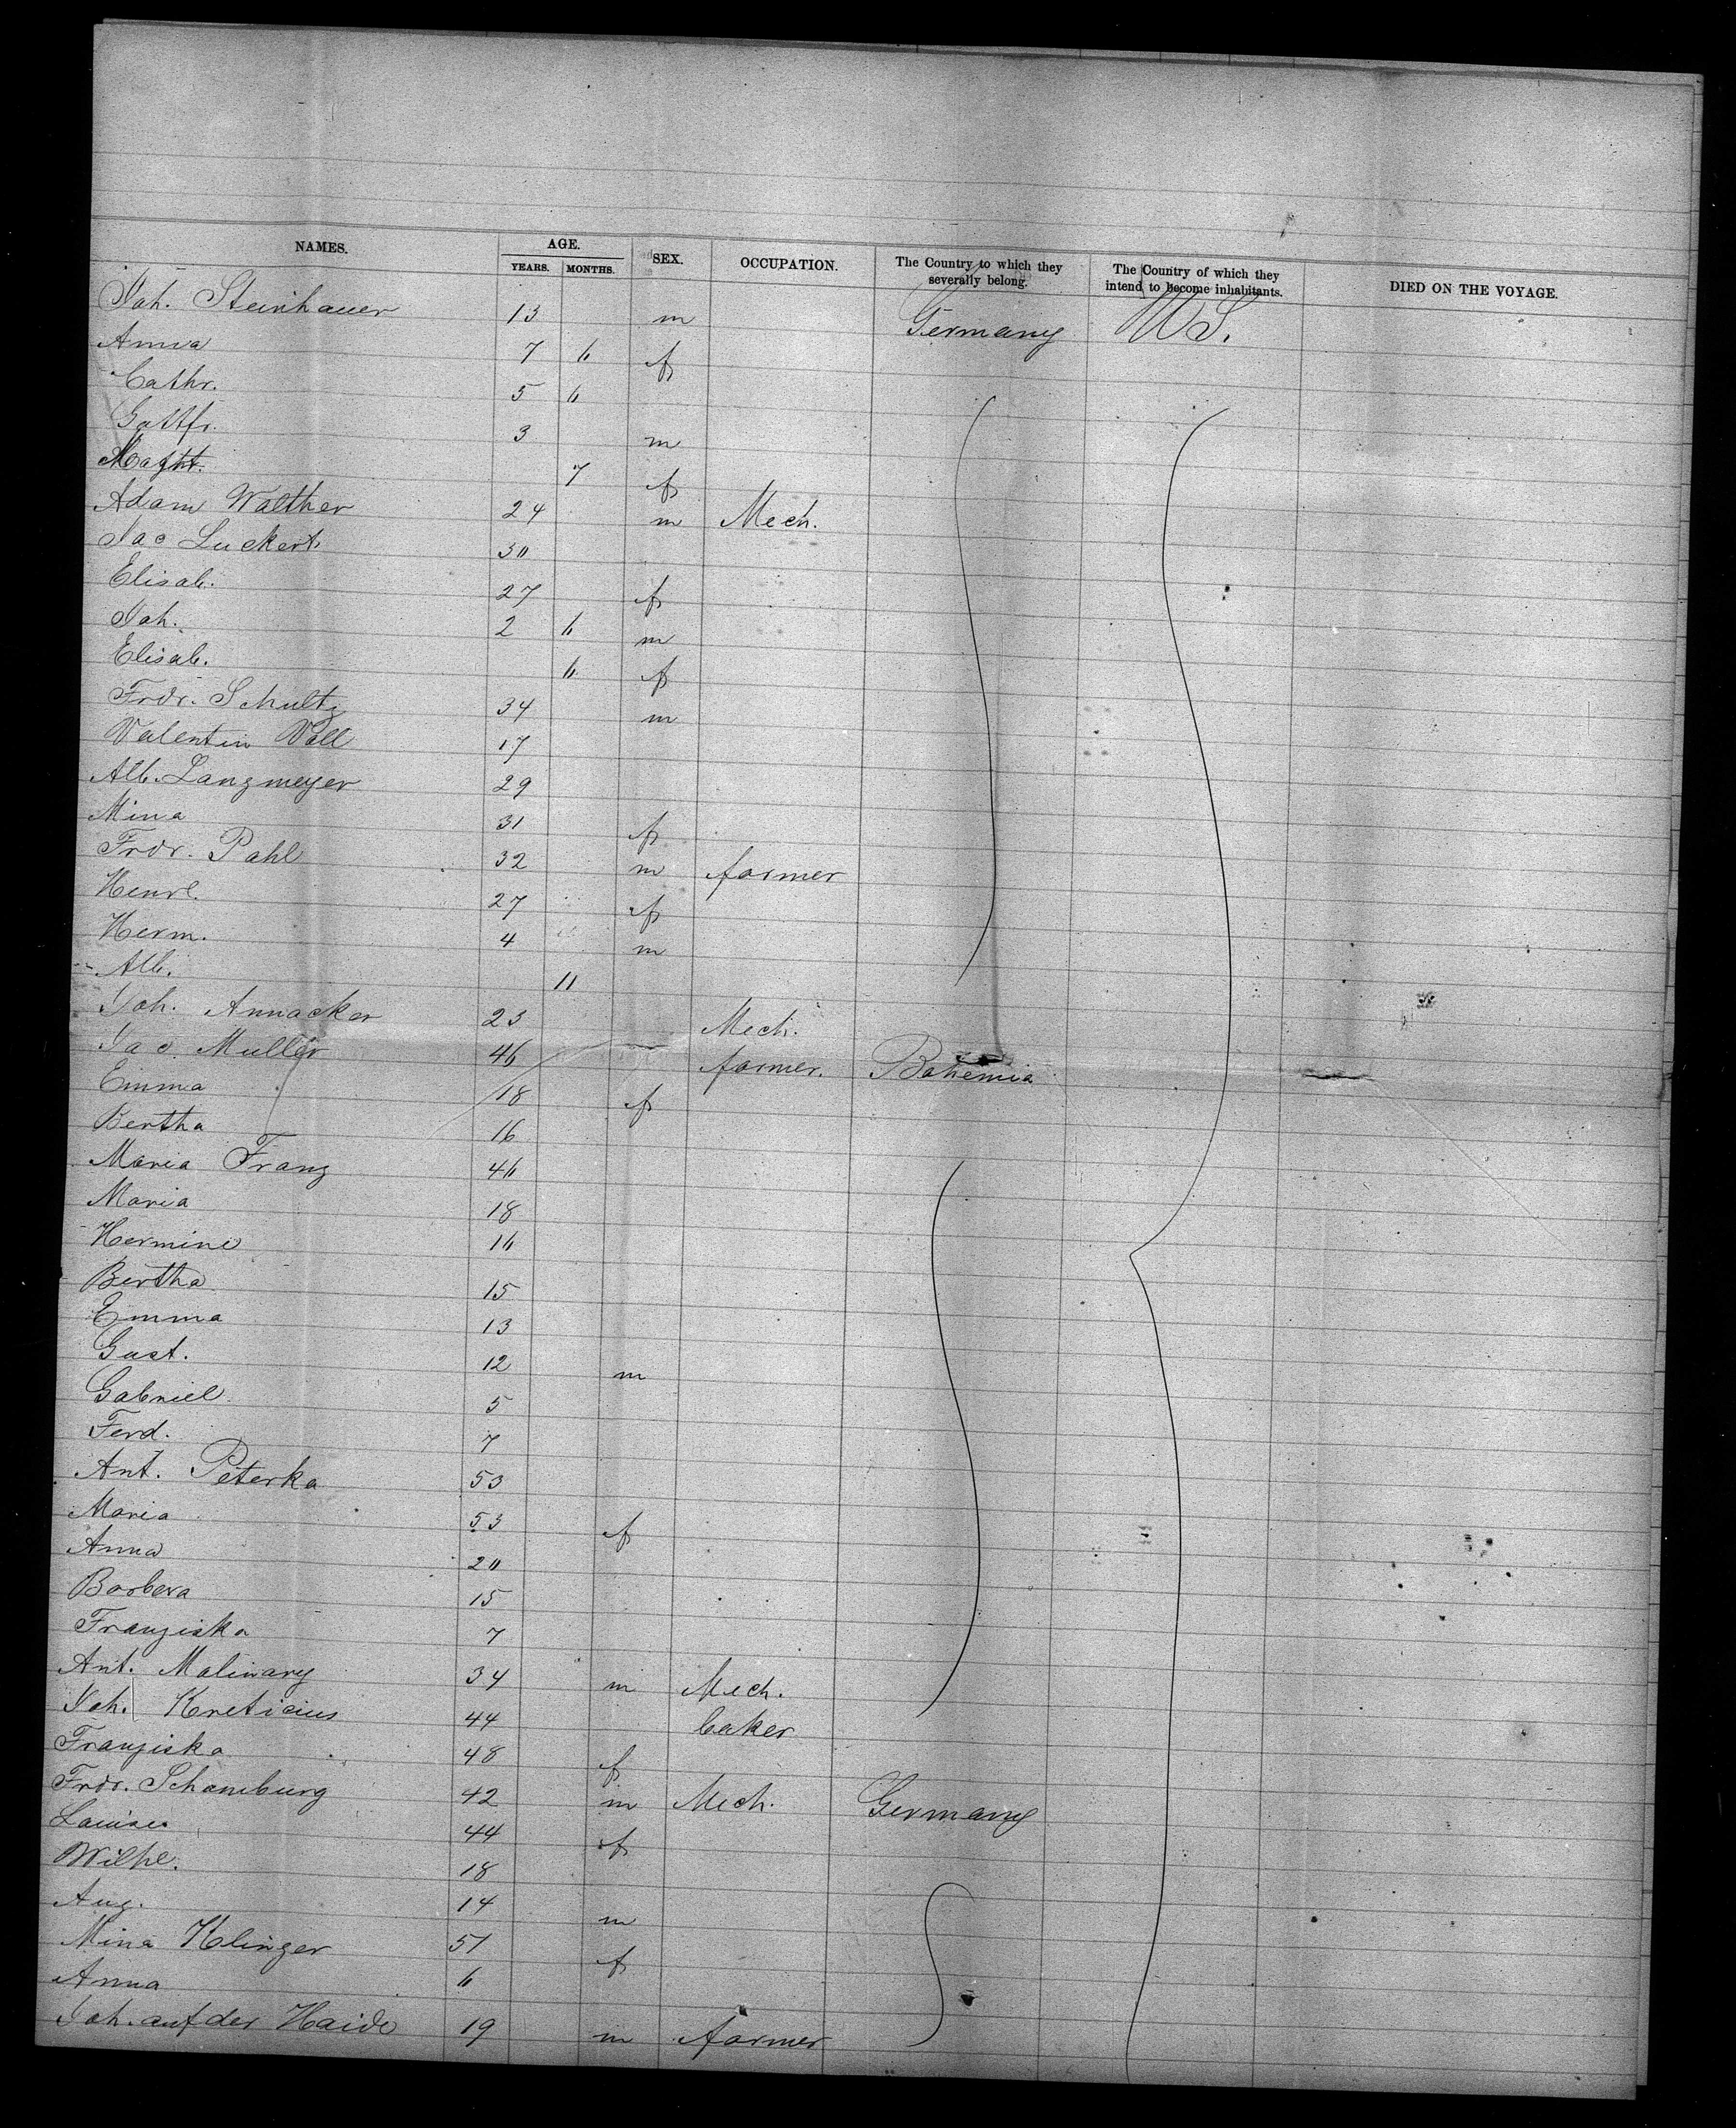 NAMES. AGE. SEX. OCCUPATION. The Country to which they severally belong. The Country of which they intend to become inhabitants. DIED ON THE VOYAGE.
YEARS. MONTHS.
Joh. Steinhauer 13 m Germany US.
Anna 7 6 f
Cathr. 5 6
Gottfr. 3 m
7 f
Adam Walther 24 m Mech.
Jac Luckert 30
Elisab. 27 f
Joh. 2 6 m
Elisab. 6 f
Frdr. Schultz 34 m
Valentin Voll 17
Alb. Langmeyer 29
Mina 31 f
Frdr. Pahl 32 m farmer
Henrl. 27 f
Herm. 4 m
Alb. 11
Joh. Annacker 23 Mech.
Jac. Muller 46 farmer. Bohemia
Emma 18 f
Bertha 16
Maria Franz 46
Maria 18
Hermine 16
Bertha 15
Emma 13
Gust. 12 m
Gabriel 5
Ferd. 7
Ant. Peterka 53
Maria 53 f
Anna 20
Barbera 15
Franziska 7
Ant. Malinary 34 m Mech.
Joh. Kreticius 44 baker
Franziska 48 f
Frdr. Schamburg 42 m Mech. Germany
Louise 44 f
Wilhl. 18
Aug. 14 m
Mina Klinger 51 f
Anna 6
Joh. auf der Haide 19 m farmer